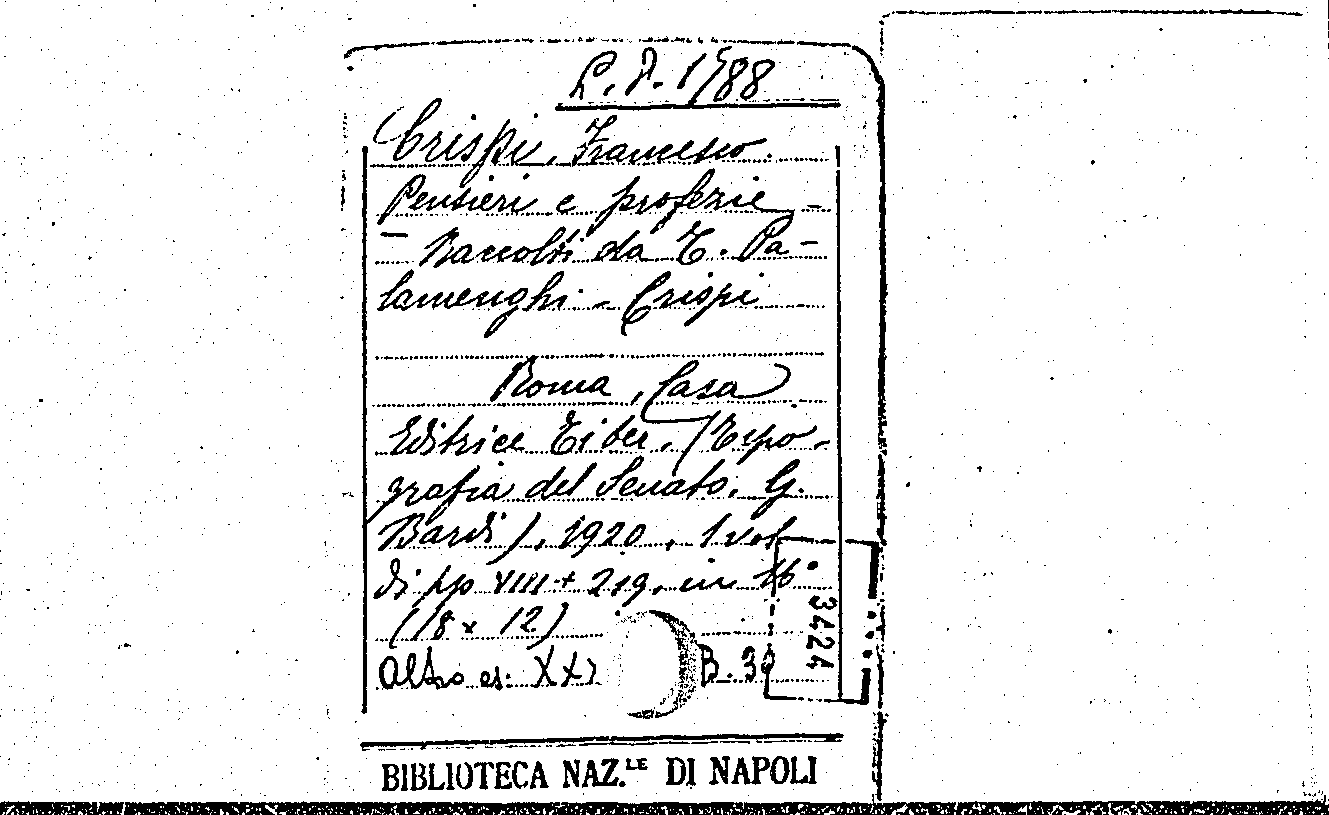 L. P. 1588
Crispi, Francesco.
Pensieri e profezie -
- Raccolti da T. Pa-
lamenghi - Crispi
Roma, Casa
Editrice Tiber. (Tipo-
grafia del Senato. G.
Bardi), 1920, 1 vol.
di pp VIII + 219, in 16°
(18 x 12)
Altro es: B.
3424
BIBLIOTECA NAZ.LE DI NAPOLI